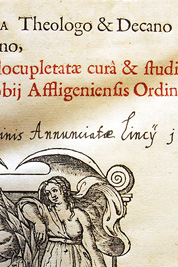 A Theologo & Decano
no,
locupletatæ curâ & studi
obij Affligeniensis Ordin
inis Annunciatæ Lincÿ j